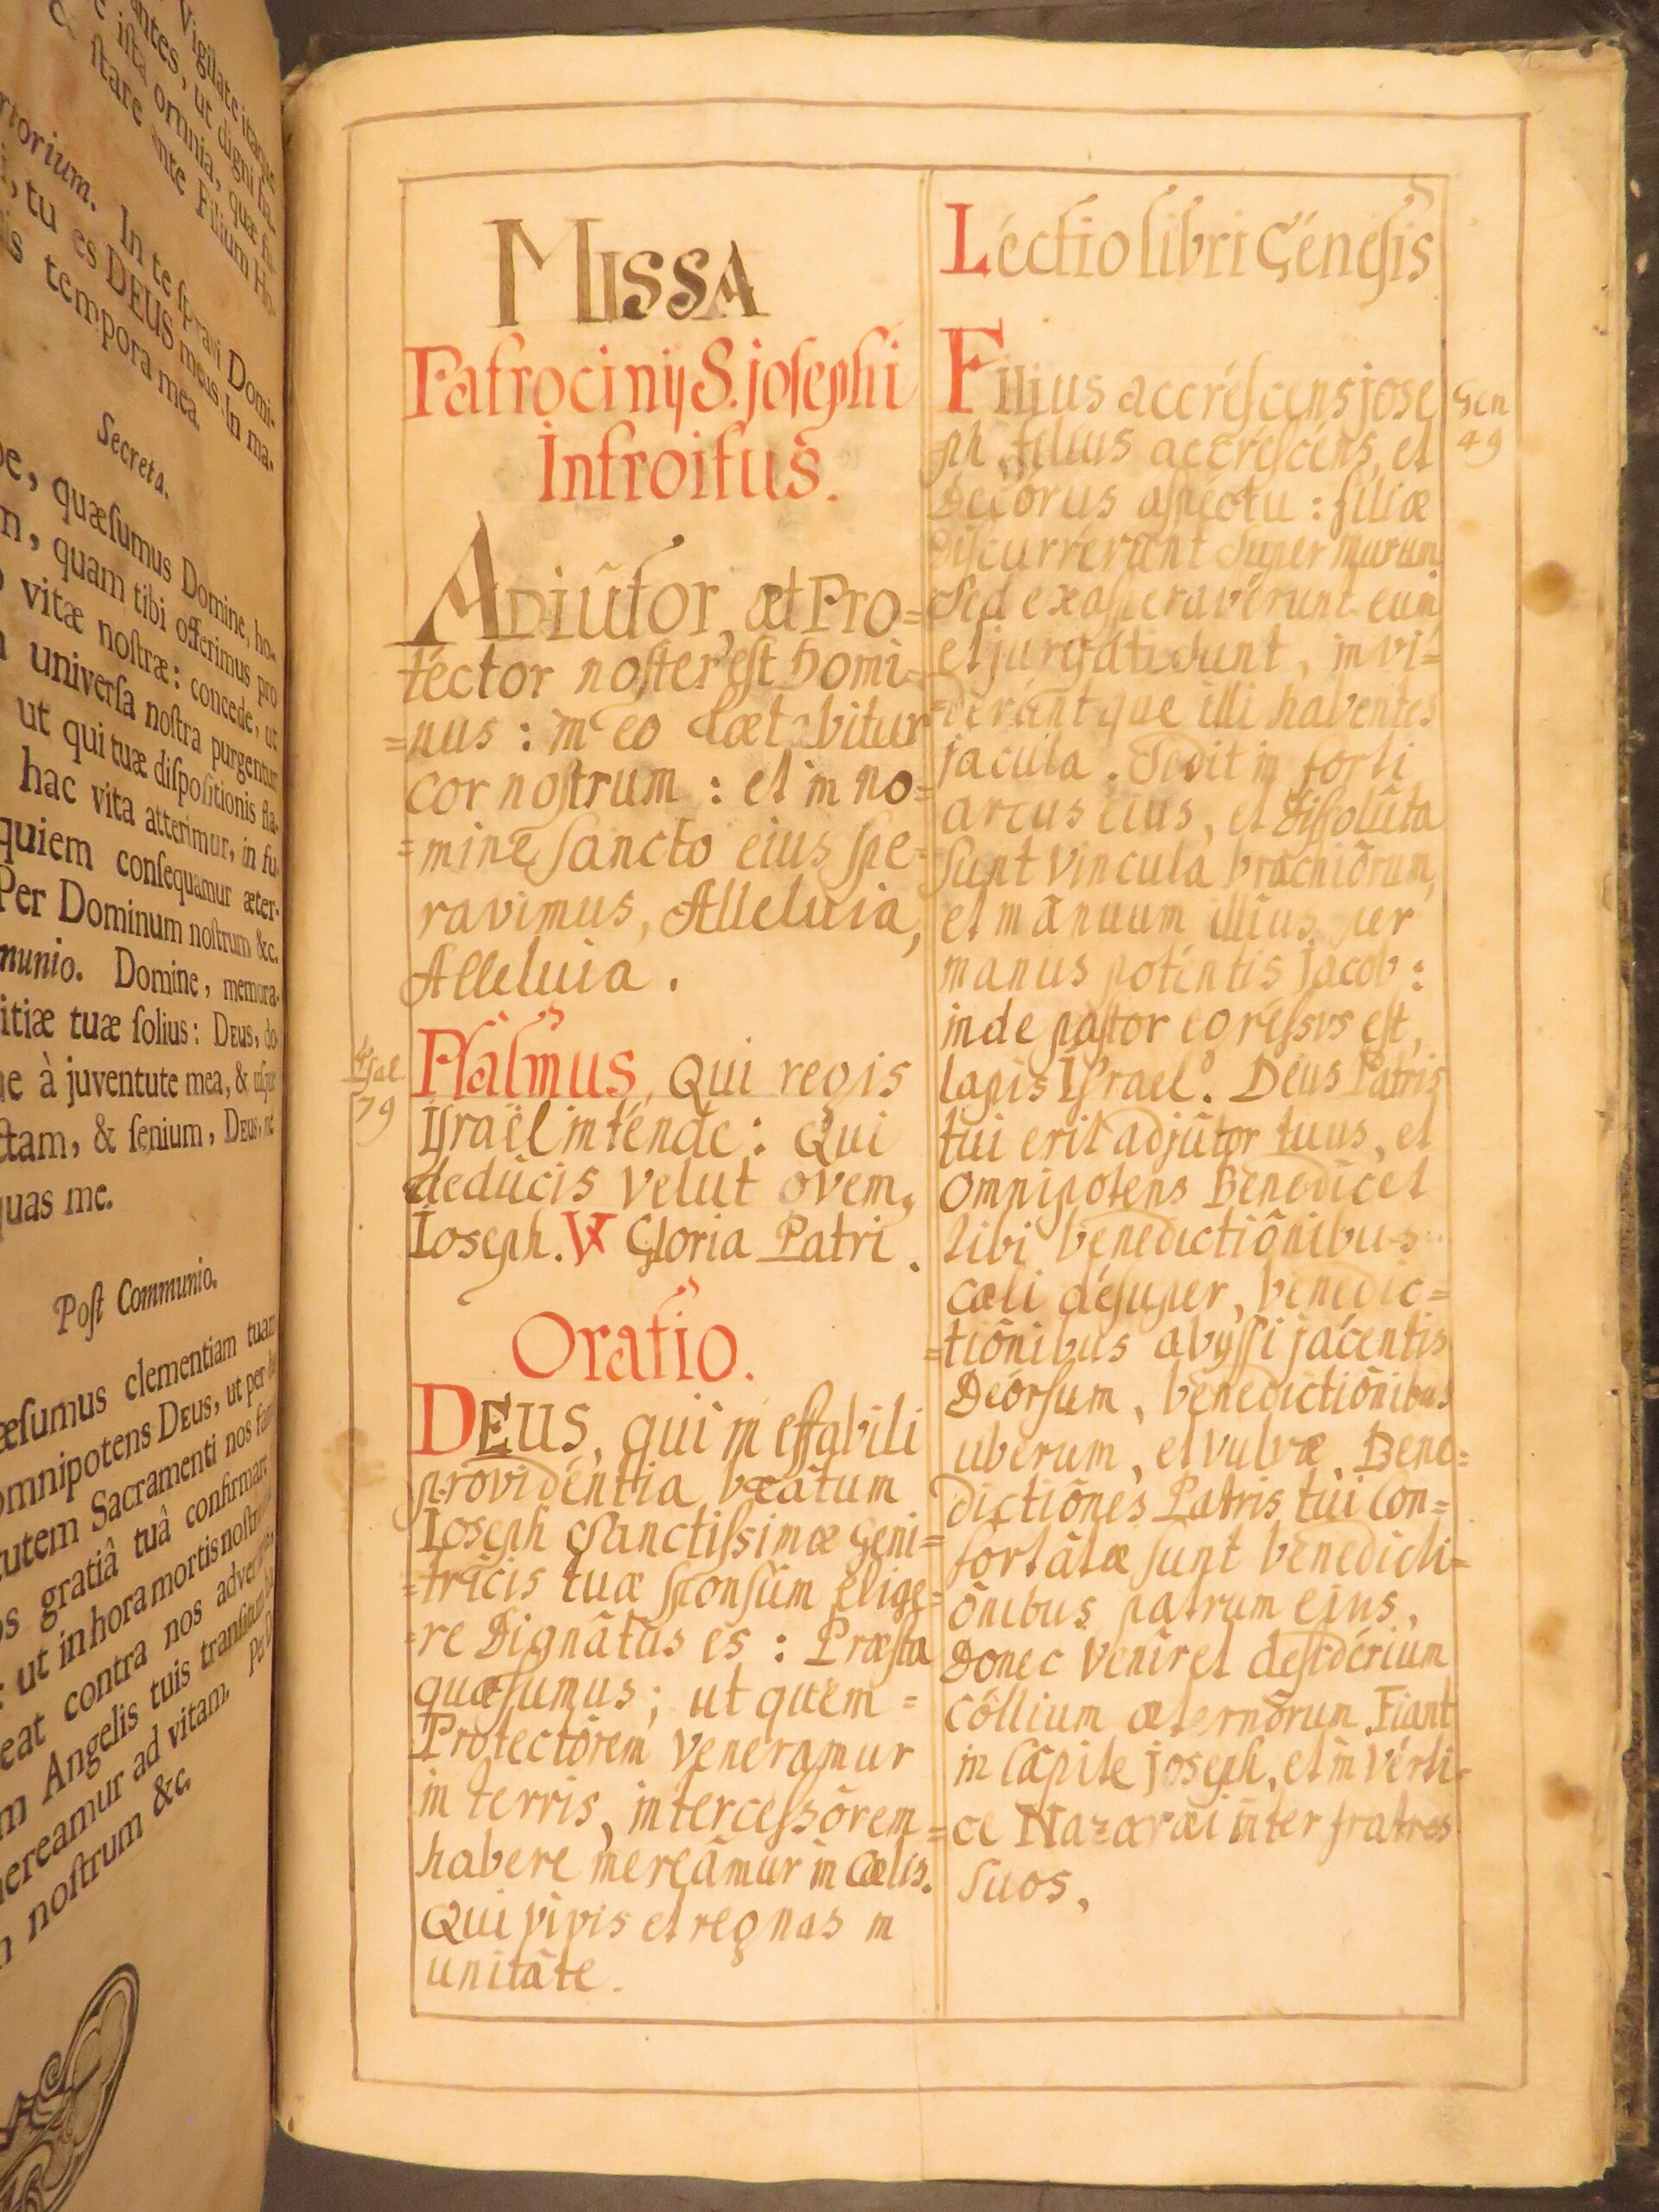 Vigilate itaque
ntes, ut digni ha-
ista omnia, quæ fu-
stare ante Filium Ho-
rtorium. In te speravi Domi-
, tu es DEUS meus. In ma-
is tempora mea.
Secreta.
pe, quæsumus Domine, ho-
n, quam tibi offerimus pro
o vitæ nostræ: concede, ut
universa nostra purgentur
ut qui tuæ dispositionis fla-
hac vita atterimur, in fu-
quiem consequamur æter-
Per Dominum nostrum &c.
munio. Domine, memora-
itiæ tuæ solius: DEUS, do-
ne à juventute mea, & usque
ctam, & senium, DEUS, ne
quas me.
Post Communio.
æsumus clementiam tuam
omnipotens DEUS, ut per
utem Sacramenti nos
os gratiâ tuâ confirmare
ut in hora mortis nostræ
eat contra nos adver
m Angelis tuis transitum
ereamur ad vitam. Per
n nostrum &c.
MISSA
Patrocinij S. josephi
Introitus.
ADiûtor, æt Pro=
téctor noster est Domi=
=nus : in eo Lætabitur
cor nostrum : et in no=
=mine sancto eius spe=
ravimus, Alleluia,
Alleluia .
Psal
79
Psalmus, Qui regis
Israël inténde : Qui
dedúcis velut ovem,
Ioseph. V Gloria Patri .
Oratio.
DEUS, qui ineffabili
providéntia beâtum
Ioseph Sanctissimæ Geni=
=trîcis tuæ sponsum elige=
=re Dignâtus es : Præsta
quæsumus ; ut quem =
Protectôrem veneramur
in terris, intercessôrem =
habere mereâmur in Cælis.
Qui vivis et regnas in
unitâte.
Léctio libri Génesis
Filius accréscens jose
ph filius accréscéns, et
Decôrus aspéctu : filiæ
Discurrérunt super murum
Sed exasperavérunt eum
et jurgáti sunt, invi=
=derúntque illi habentes
jacula. Sedit in forti
arcus eius, et Dissolûta
sunt vincula brachiôrum,
et mánuum illius per
manus poténtis Jacob :
inde pastor egréssus est,
lapis Israel. Deus Patris
tui erit adjûtor tuus, et
Omnipotens Benedicet
tibi benedictiônibus
cæli désuper, benedic=
=tiônibus abyssi jacéntis
Deórsum, benedictiônibus
uberum, et vulvæ. Bene=
dictiônes Patris tui Con=
fortâtæ sunt benedicti=
ônibus patrum ejus,
Donec veníret desidérium
Cóllium æternôrum. Fiant
in Cápite joseph, et in vérti=
ce Nazaræi inter fratres
suos.
Gen
49